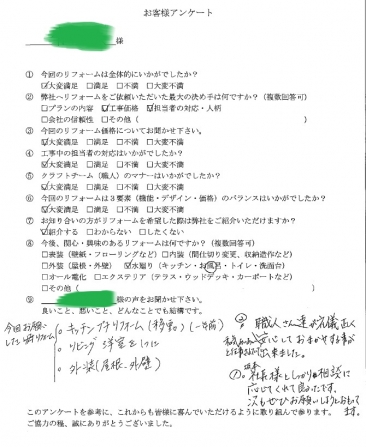 お客様アンケート
様
① 今回のリフォームは全体的にいかがでしたか?
☑大変満足 □満足 □不満 □大変不満
② 弊社へリフォームをご依頼いただいた最大の決め手は何ですか?(複数回答可)
□プランの内容 ☑工事価格 ☑担当者の対応・人柄
□会社の信頼性 □その他( )
③ 今回のリフォーム価格についてお聞かせ下さい。
☑大変満足 □満足 □不満 □大変不満
④ 工事中の担当者の対応はいかがでしたか?
☑大変満足 □満足 □不満 □大変不満
⑤ クラフトチーム(職人)のマナーはいかがでしたか?
☑大変満足 □満足 □不満 □大変不満
⑥ 今回のリフォームは3要素(機能・デザイン・価格)のバランスはいかがでしたか?
☑大変満足 □満足 □不満 □大変不満
⑦ お知り合いの方がリフォームを希望した際は弊社をご紹介いただけますか?
☑紹介する □わからない □したくない
⑧ 今後、関心・興味のあるリフォームは何ですか?(複数回答可)
□表装(壁紙・フローリングなど) □内装(間仕切り変更、収納造作など)
□外装(屋根・外壁) ☑水廻り(キッチン・お風呂・トイレ・洗面台)
□オール電化 □エクステリア(テラス・ウッドデッキ・カーポートなど)
□その他( )
⑨ 様の声をお聞かせ下さい。
良いこと、悪いこと、どんなことでも結構です。
今回お願い
したリフォーム
。キッチンプチリフォーム(移窓)
。リビング 洋室を1つに
。外装(屋根、外壁)
職人さん達が礼儀正しく
安心しておまかせする事が
出来ました。
社長様としっかり相談に
応じてくれて良かったです。
次もぜひお願いしようとおもって
ます。
このアンケートを参考に、これからも皆様に喜んでいただけるように取り組んで参ります。
ご協力の程、誠にありがとうございました。